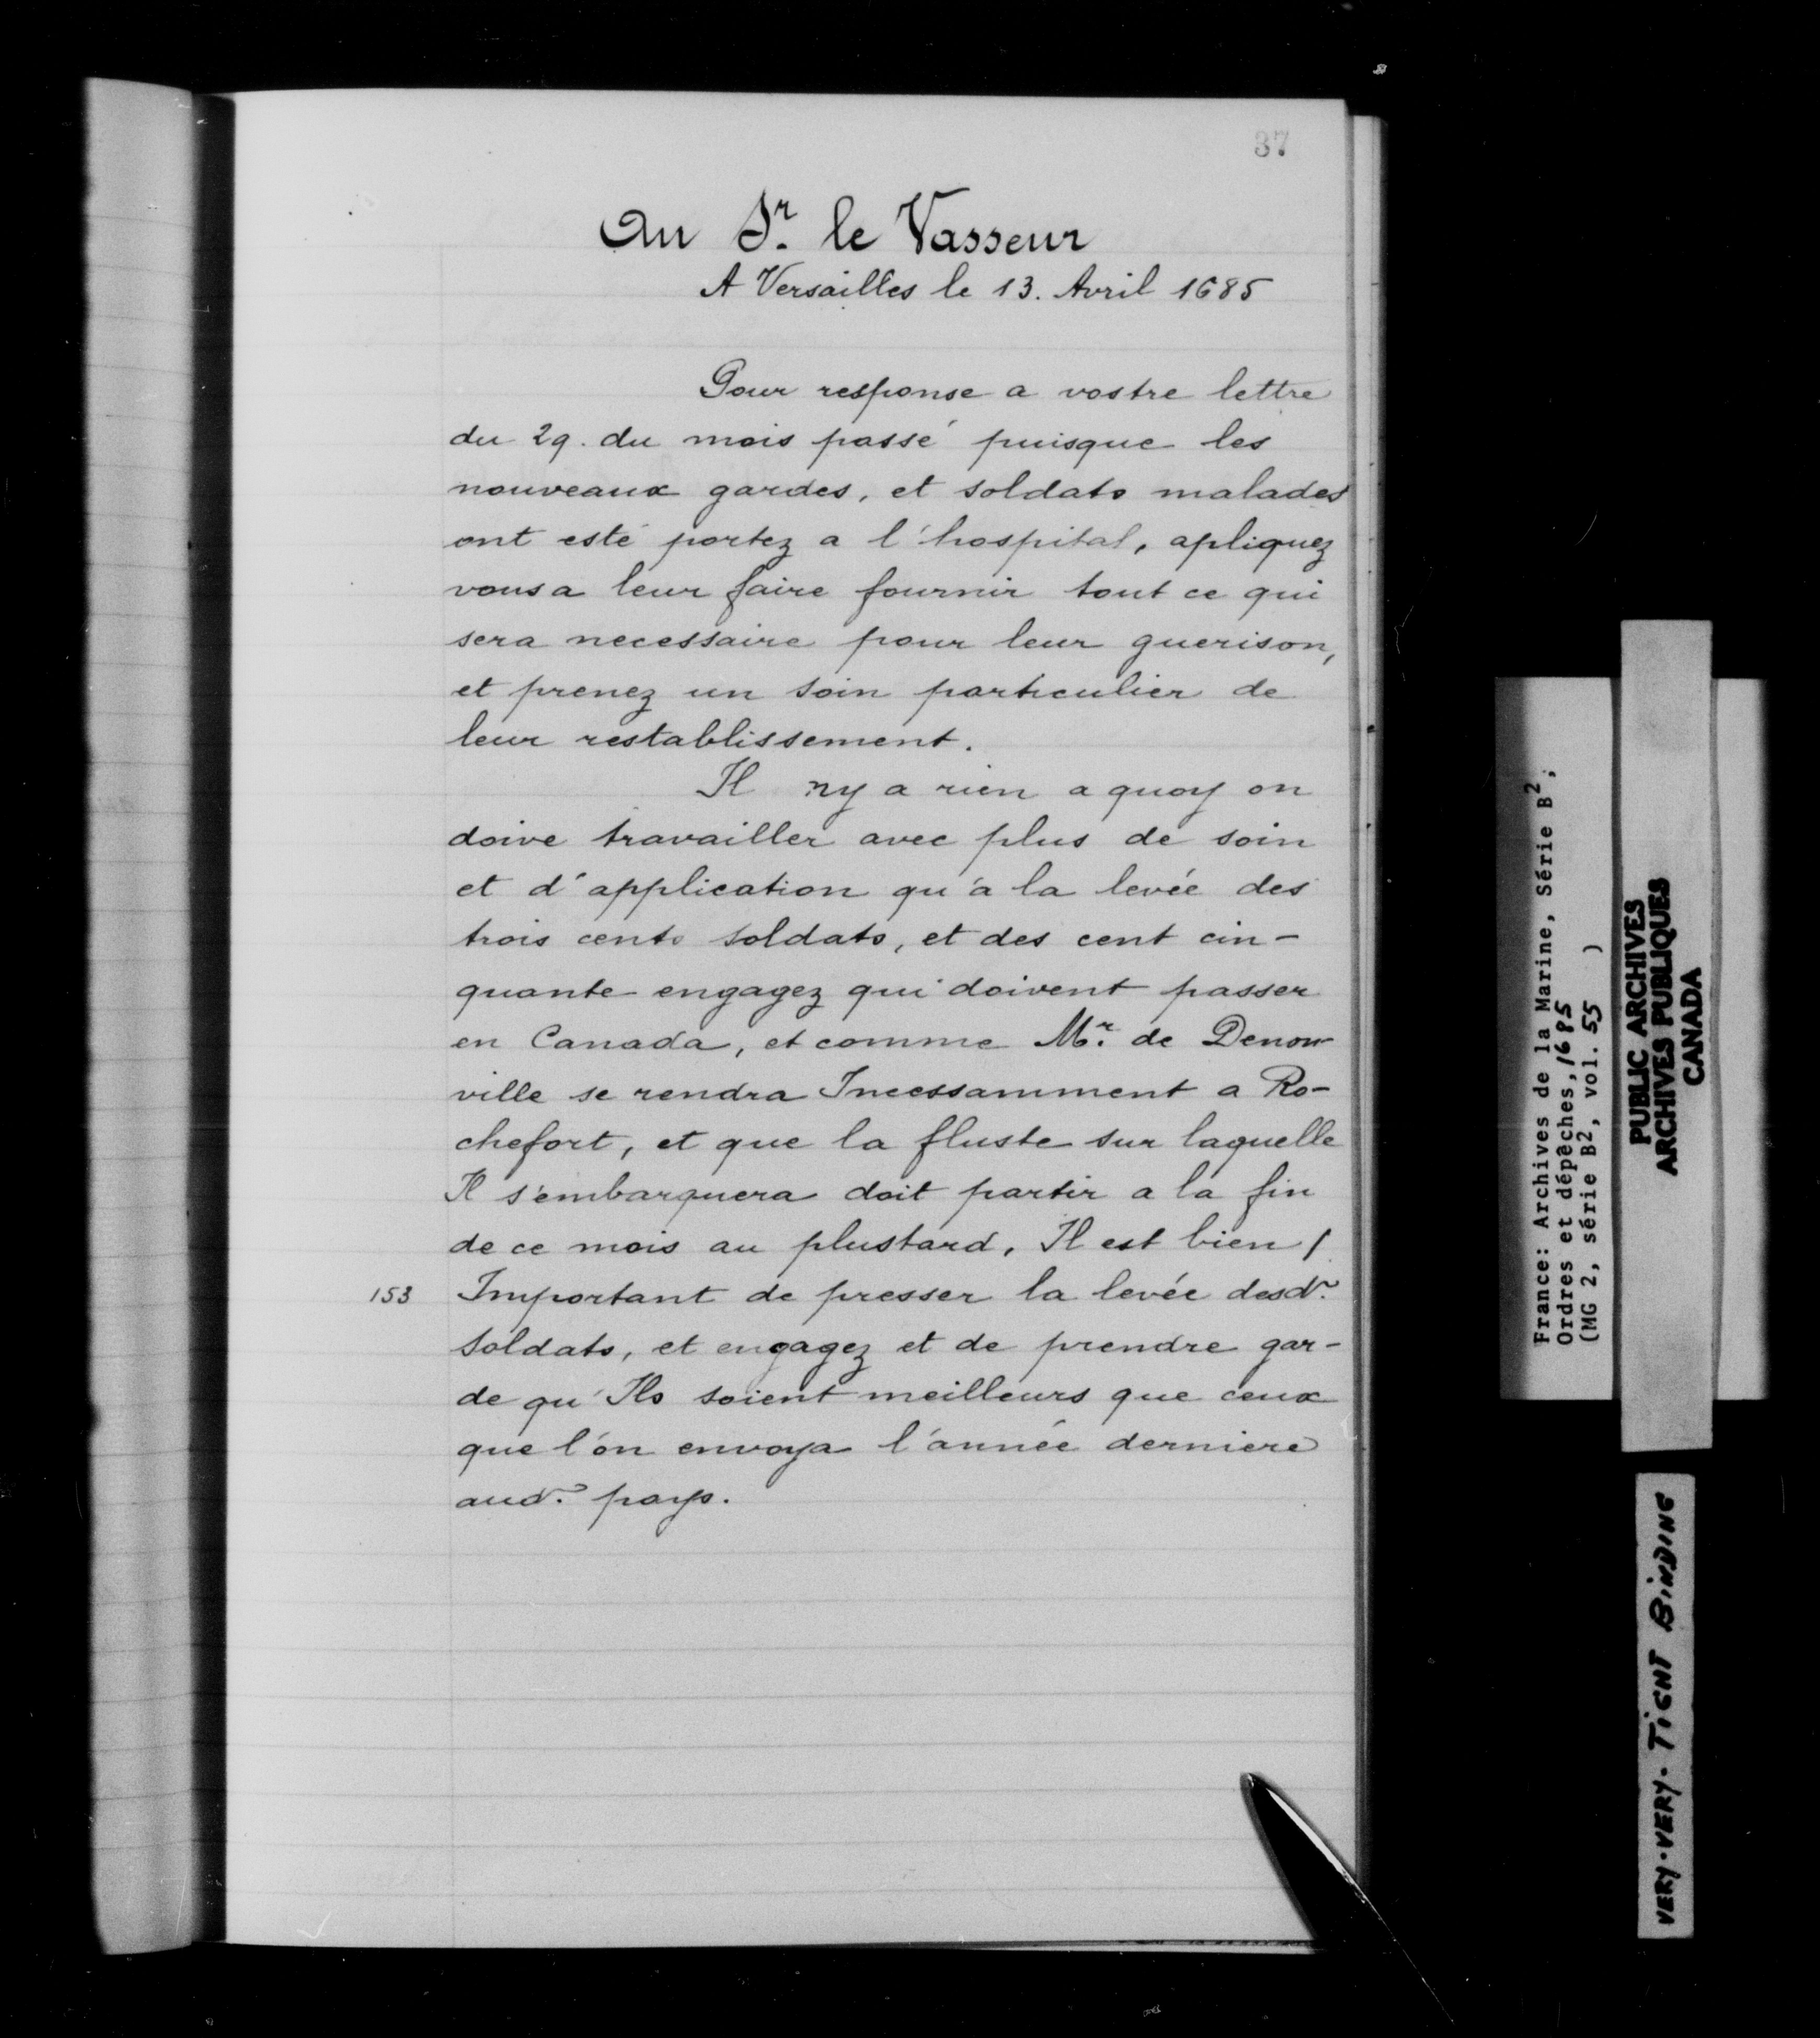 37
Au Sr. le Vasseur
A Versailles le 13. Avril 1685
Pour response a vostre lettre
du 29. du mois passé puisque les
nouveaux gardes, et soldats malades
ont esté portez a l'hospital, apliquez
vous a leur faire fournir tout ce qui
sera necessaire pour leur guerison,
et prenez un soin particulier de
leur restablissement.
Il ny a rien a quoy on
doive travailler avec plus de soin
et d'application qu'a la levée des
trois cents soldats, et des cent cin-
quante engagez qui doivent passer
en Canada, et comme Mr. de Denon-
ville se rendra Incessamment a Ro-
chefort, et que la fluste sur laquelle
Il s'embarquera doit partir a la fin
de ce mois au plustard, Il est bien /
153 Important de presser la levée desd.
soldats, et engagez et de prendre gar-
de qu'Ils soient meilleurs que ceux
que l'on envoya l'année derniere
aud. pays.
France: Archives de la Marine, Série B2,
Ordres et dépêches, 1685
(MG 2, série B2, vol. 55 )
PUBLIC ARCHIVES
ARCHIVES PUBLIQUES
CANADA
VERY-VERY-TIGHT BINDING